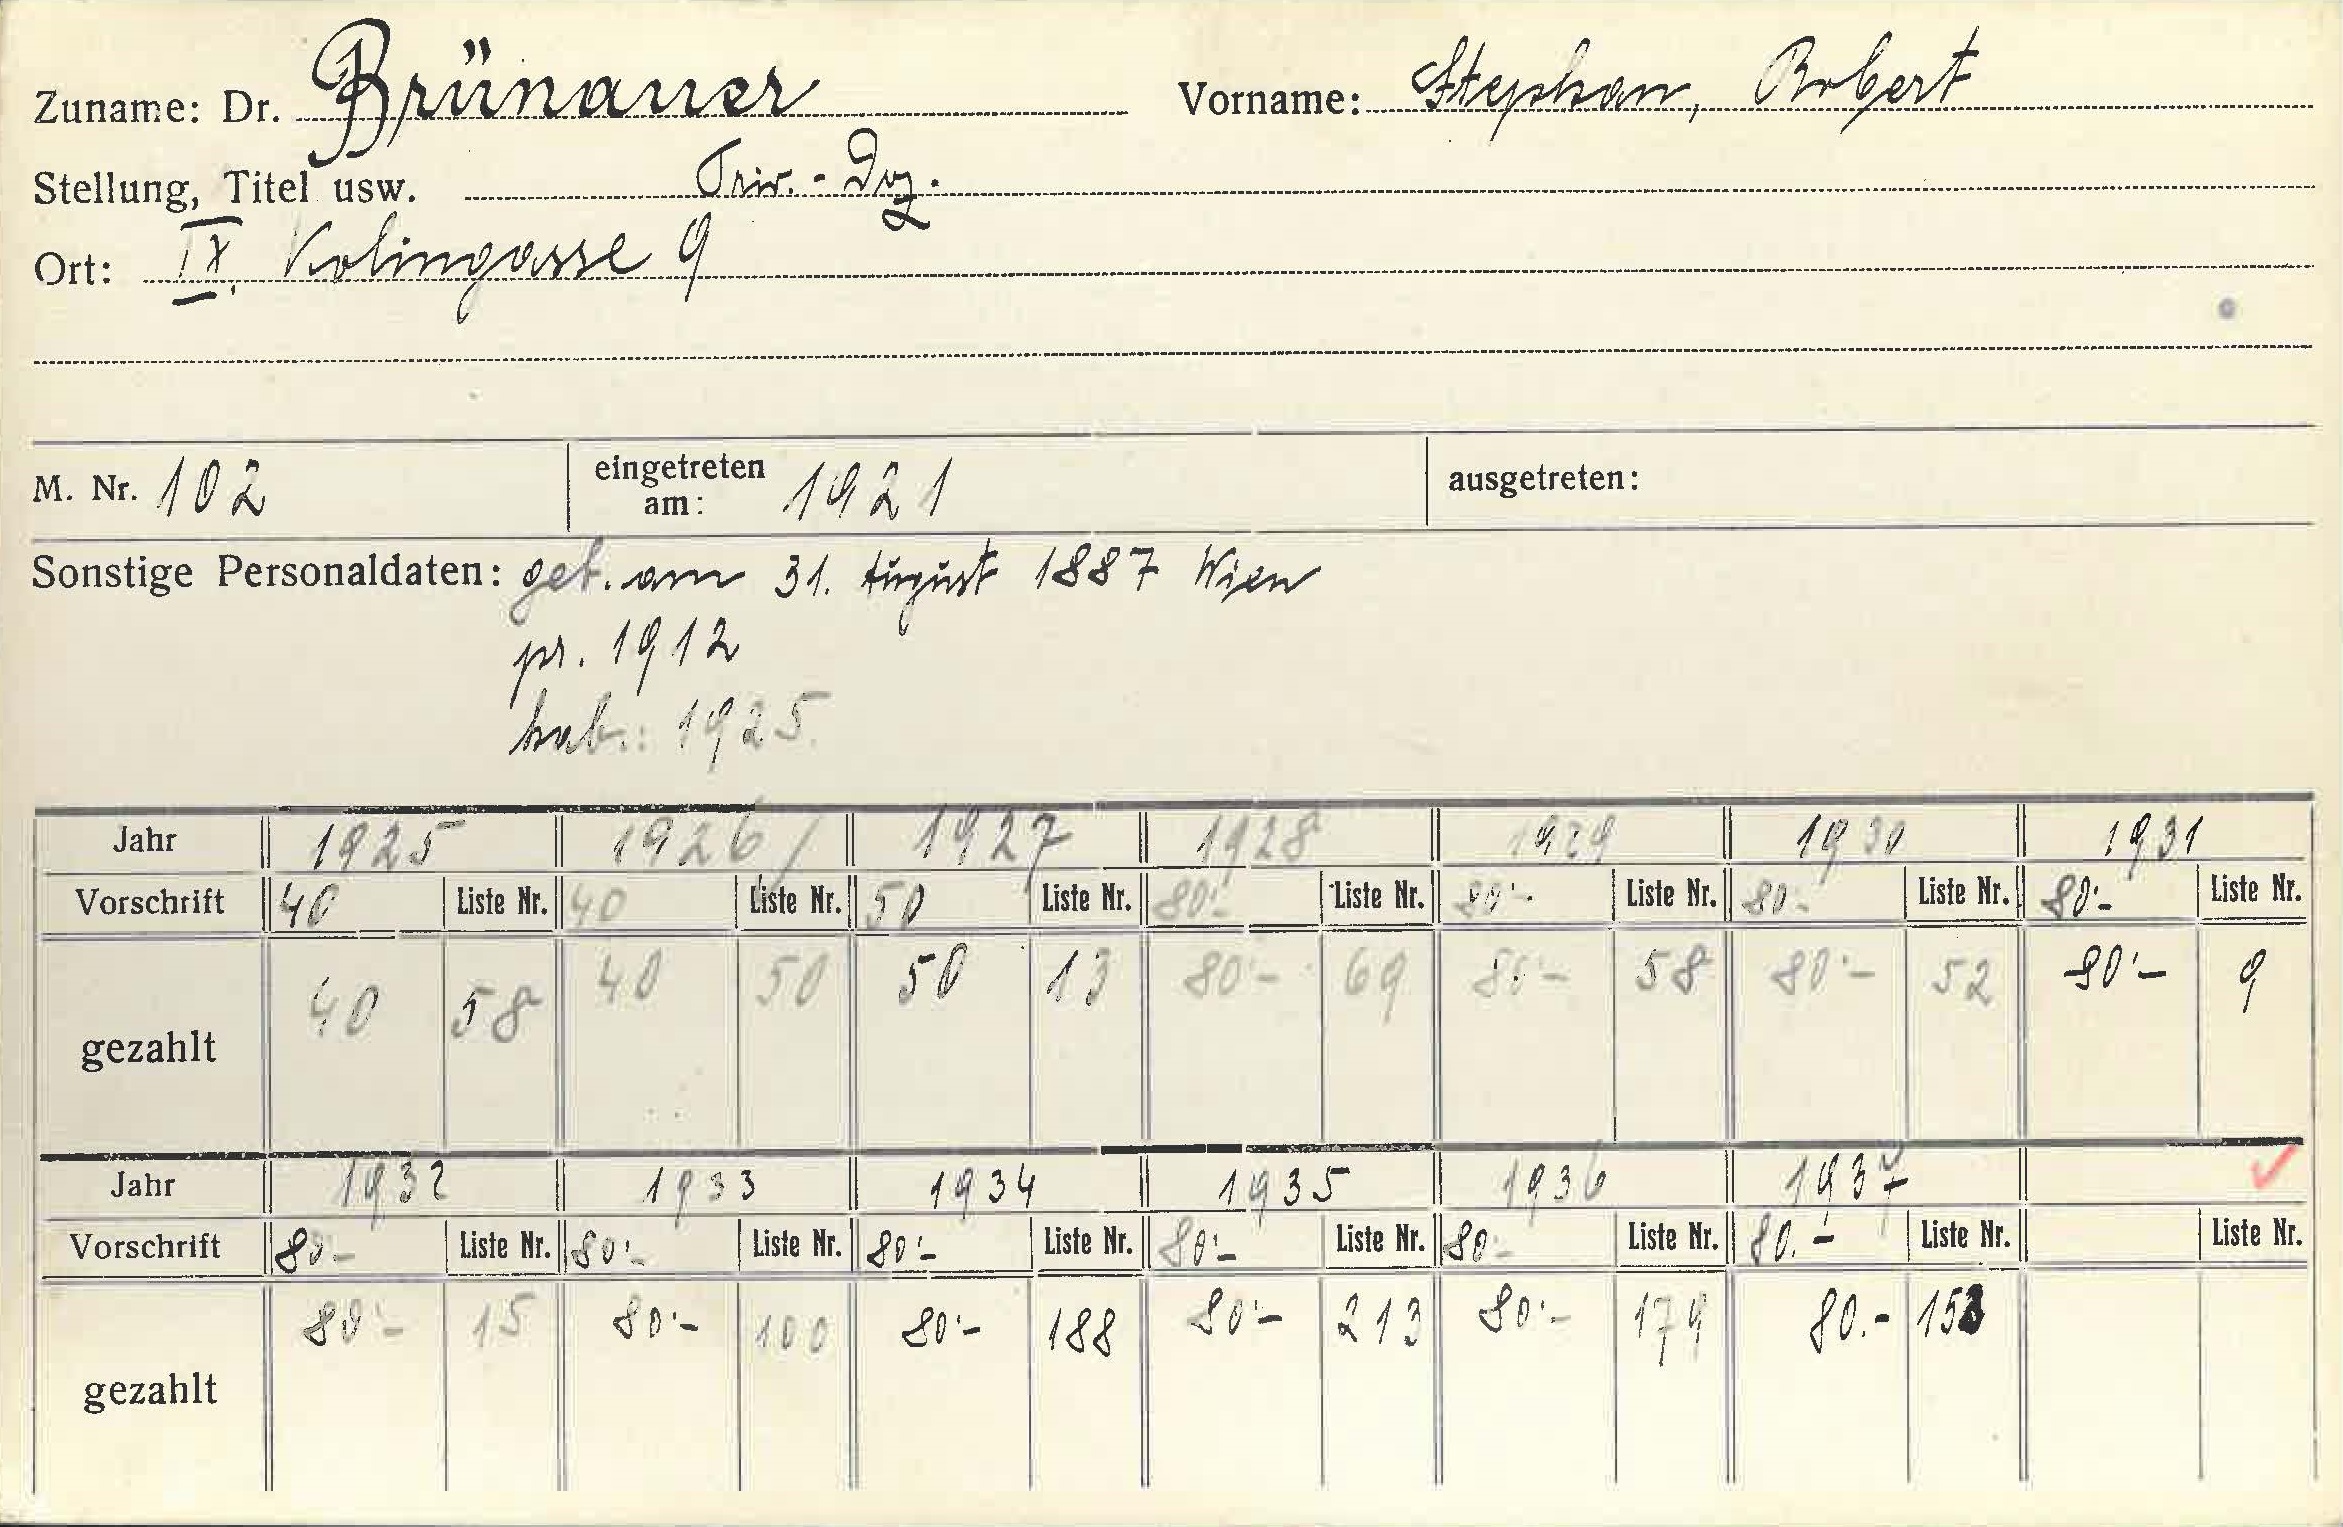 Zuname: Dr. Brünauer Vorname: Stephan, Robert
Stellung, Titel usw. Priv.-Doz.
Ort: IX. Kolingasse 9
M. Nr. 102 eingetreten am: 1921 ausgetreten:
Sonstige Personaldaten: geb. am 31. August 1887 Wien
pr. 1912
hab.: 1925.
Jahr 1925 1926 1927 1928 1929 1930 1931
Vorschrift 40 Liste Nr. 40 Liste Nr. 50 Liste Nr. 80'- Liste Nr. 80'- Liste Nr. 80.- Liste Nr. 80'- Liste Nr.
gezahlt 40 58 40 50 50 13 80'- 69 80'- 58 80'- 52 80'- 9
Jahr 1932 1933 1934 1935 1936 1937
Vorschrift 80- Liste Nr. 80'- Liste Nr. 80'- Liste Nr. 80'- Liste Nr. 80- Liste Nr. 80.- Liste Nr. Liste Nr.
gezahlt 80'- 15 80'- 100 80'- 188 80'- 213 80'- 179 80.-